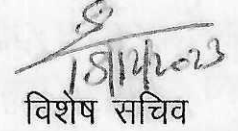 18/12/2023
विशेष सचिव